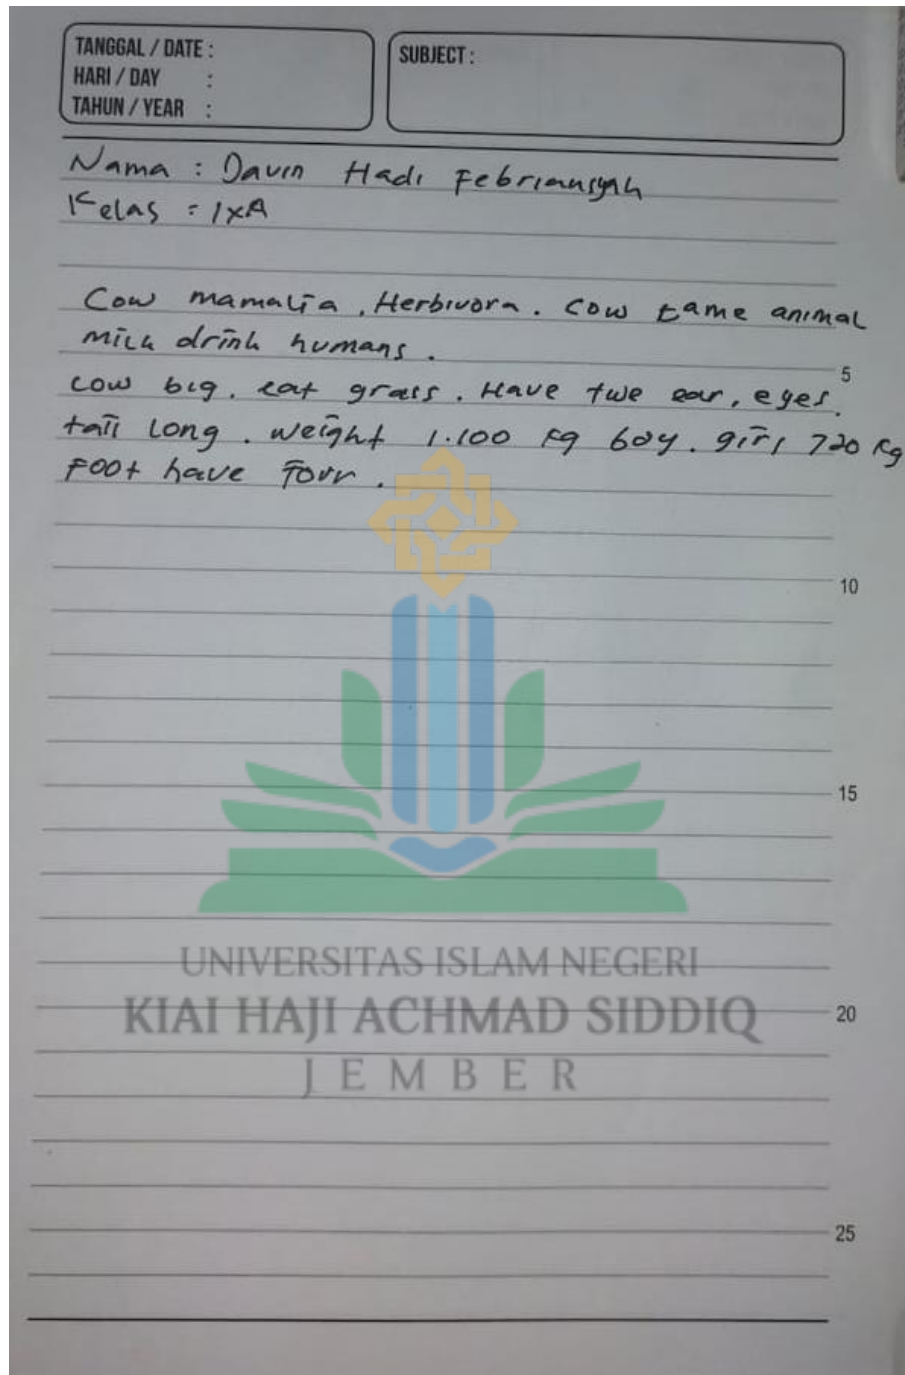 TANGGAL / DATE :
HARI / DAY :
TAHUN / YEAR :
SUBJECT :
Nama : Davin Hadi Febriansyah
Kelas : IXA
Cow mamalia, Herbivora. Cow tame animal
milk drink humans.
5
Cow big. eat grass. Have twe ear, eyes.
tail long. weight 1.100 kg boy. girl 720 kg
Foot have four.
10
15
UNIVERSITAS ISLAM NEGERI
KIAI HAJI ACHMAD SIDDIQ
20
JEMBER
25